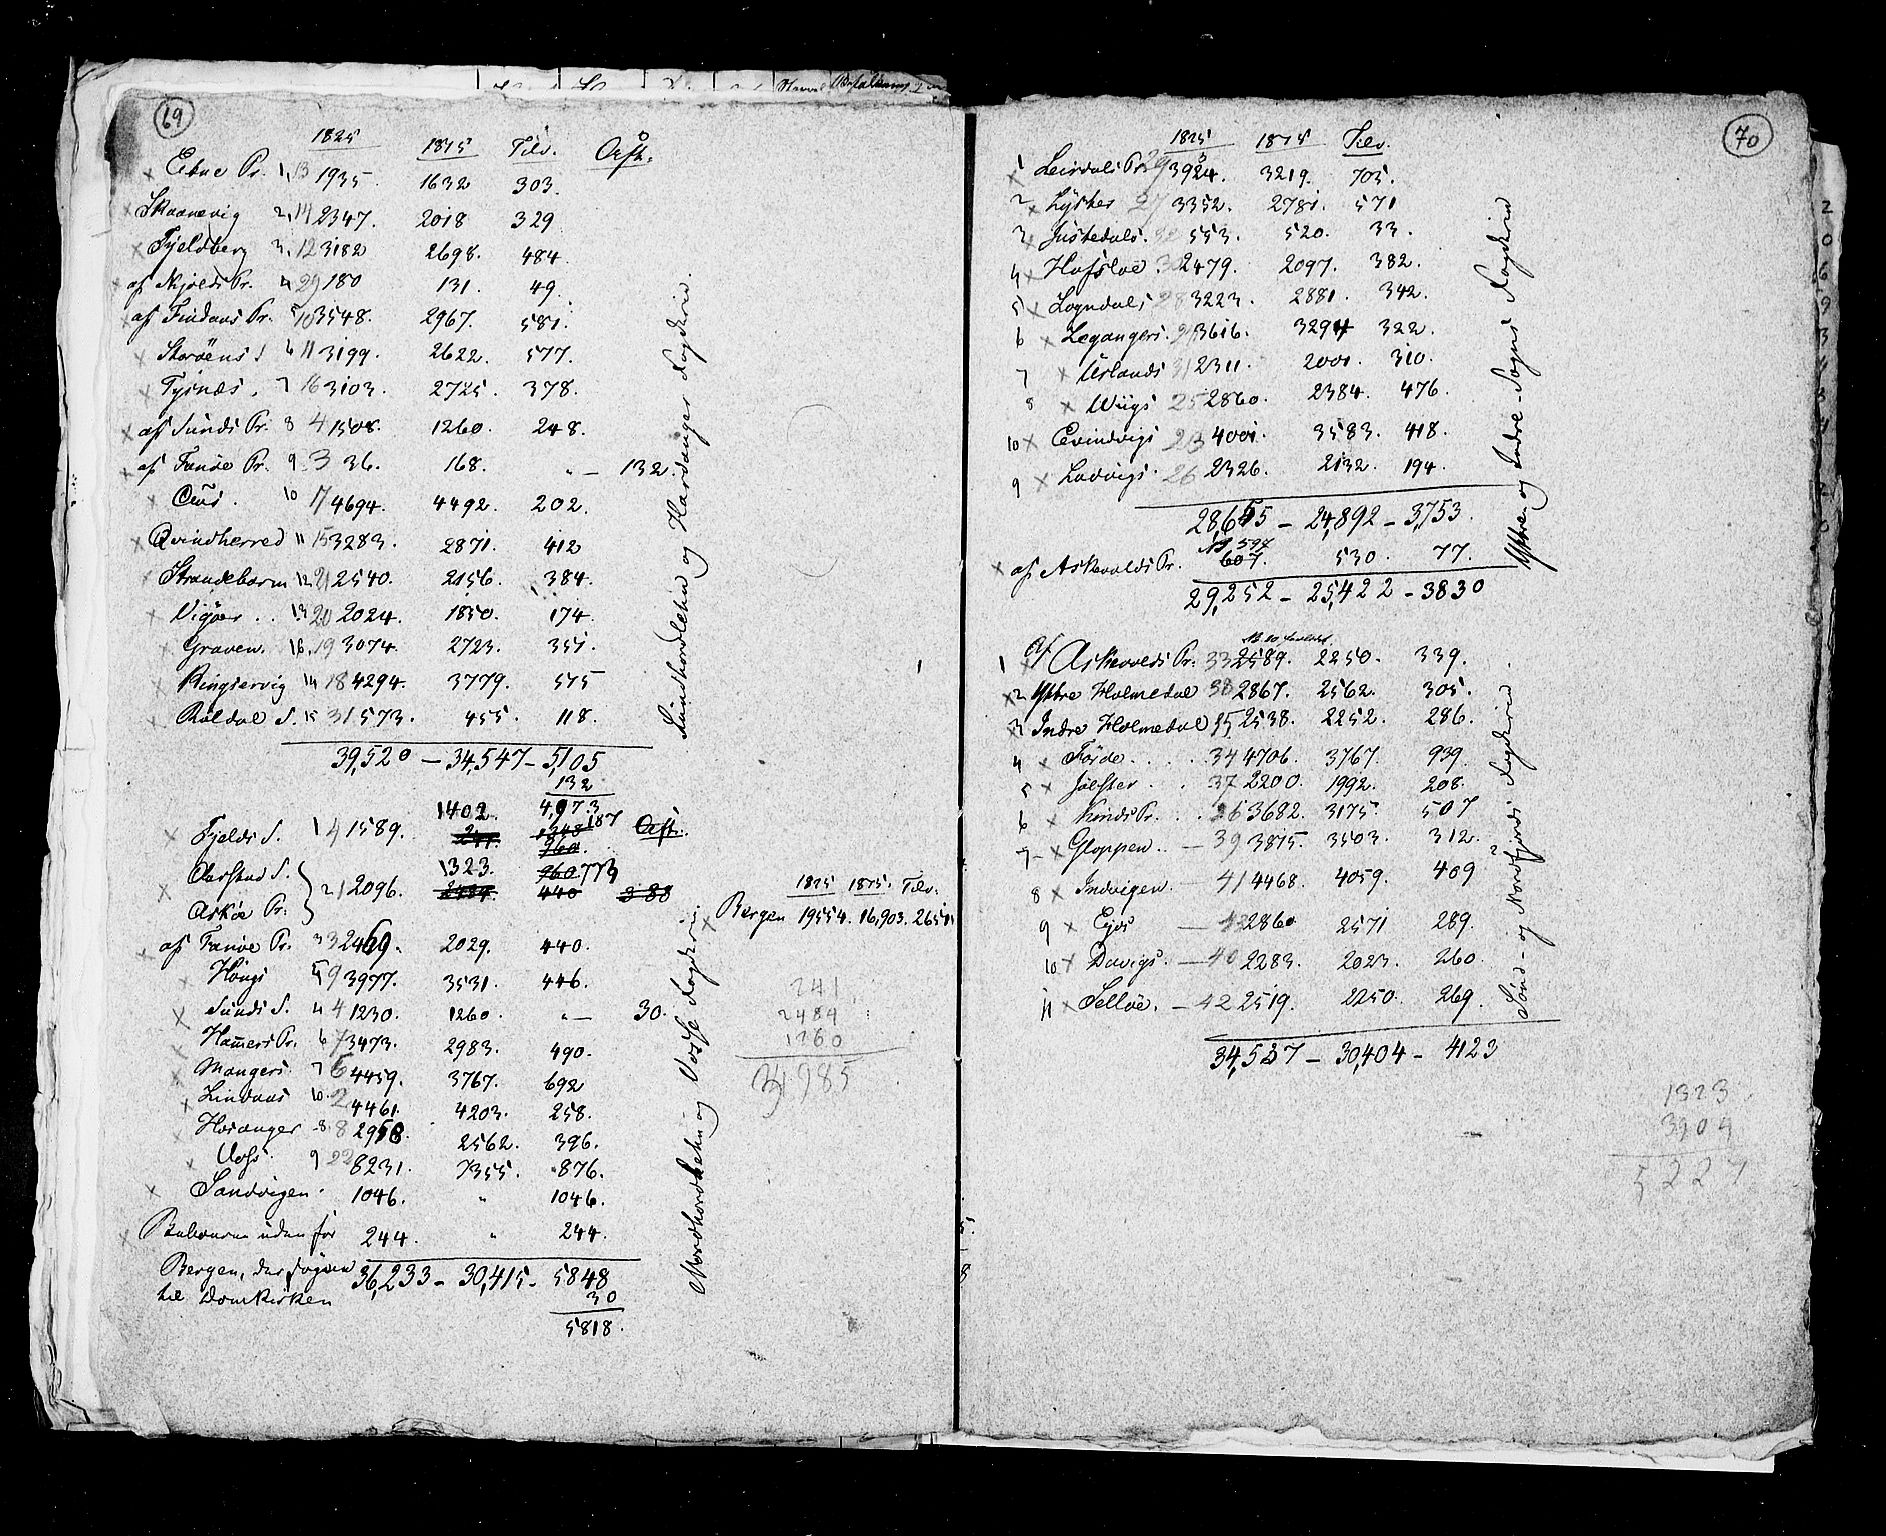 69
1825 1815 Tilv. Aft.
Etne Pr. 1, 13 1935. 1632 303.
Skaanevig 2, 14 2347. 2018 329
Fjeldberg 3. 12 3182 2698. 484.
af Skjolds Pr. 4 29 180 131. 49.
af Findaas Pr. 5 10 3548. 2967. 581.
Storöens S 6 11 3199. 2622. 577.
Tysnæs. 7 16 3103. 2725. 378.
af Sunds Pr. 8 4 1508. 1260. 248.
af Fanöe Pr. 9. 3 36. 168. " — 132.
Ous. 10 17 4694. 4492. 202.
Qvindherred 11 15 3283. 2871. 412
Strandebarm 12 21 2540. 2156. 384.
Vigöer .. 13 20 2024. 1850. 174.
Graven. 16. 19 3074. 2723. 351.
Kingservig 14 18 4294. 3779. 515
Röldal S. 15 31 573. 455. 118.
39,520 — 34,547 — 5,105
132
4,973
Sundhordlehn og Hardanger Fogderie
Fjelds S. 1 4 1589. 1402. 187
Aarstad S.
Askøe Pr. 2 1 2096. 1323. 773
af Fanöe Pr. 3 3 2469. 2029. 440.
Haugs 5 9 3977. 3531. 446.
Sunds S. 4 4 1230. 1260. " — 30.
Hamers Pr. 6 7 3473. 2983. 490.
Mangers 7 6 4459. 3767. 692
Lindaas 10. 2 4461. 4203. 258.
Hosanger 8. 8 2958. 2562. 396.
Voss. 9 22 8231. 7355. 876.
Sandvigen. 1046. " 1046.
Beboerne uden for 244. " 244.
Bergen, der søgner
til Domkirken
36,233 — 30,415 — 5848
30
5818.
Nordhordlehn og Vosse Fogderie
1825 1815. Tilv.
Bergen 19554. 16,903. 2651
241
2484
1260
3985
70
1825 1815 Tilv.
1 Leirdals Pr. 29 3924. 3219. 705.
2 Lyster 27 3352. 2781. 571
3 Justedals. 32 553. 520. 33.
4 Hafsloe 30 2479. 2097. 382.
5 Sogndals 28 3223. 2881. 342.
6 Leganger. 24 3616. 3294 322.
7 Urlands 31 2311. 2001. 310.
8 Wiigs 25 2860. 2384. 476.
10 Evindvigs 23 4001. 3583. 418.
9 Ladvigs. 26 2326. 2132. 194.
28,645 — 24,892 — 3,753.
af Askevolds Pr. 607. 530. 77.
29,252 — 25,422 — 3830
Ysthre og Indre-Sogns Fogderie
1 af Askevolds Pr. 33 2589. 2250. 339.
2 Ysthre Holmedal 38 2867. 2562. 305.
3 Indre Holmedal 35 2538. 2252. 286.
4 Förde.... 34 4706. 3767. 939.
5 Jölster.. 37 2200. 1992. 208.
6 Kinds Pr... 36 3682. 3175. 507
7 Gloppen.. — 39 3815. 3503. 312.
8 Indvigen. — 41 4468. 4059. 409
9 Eids — 43 2860 2571 289.
10 Davigs. — 40 2283. 2023. 260
11 Selløe. — 42 2519. 2250. 269.
34,527 — 30,404 — 4123
Sönd- og Nordfjords Fogderie
1323
3904
5227